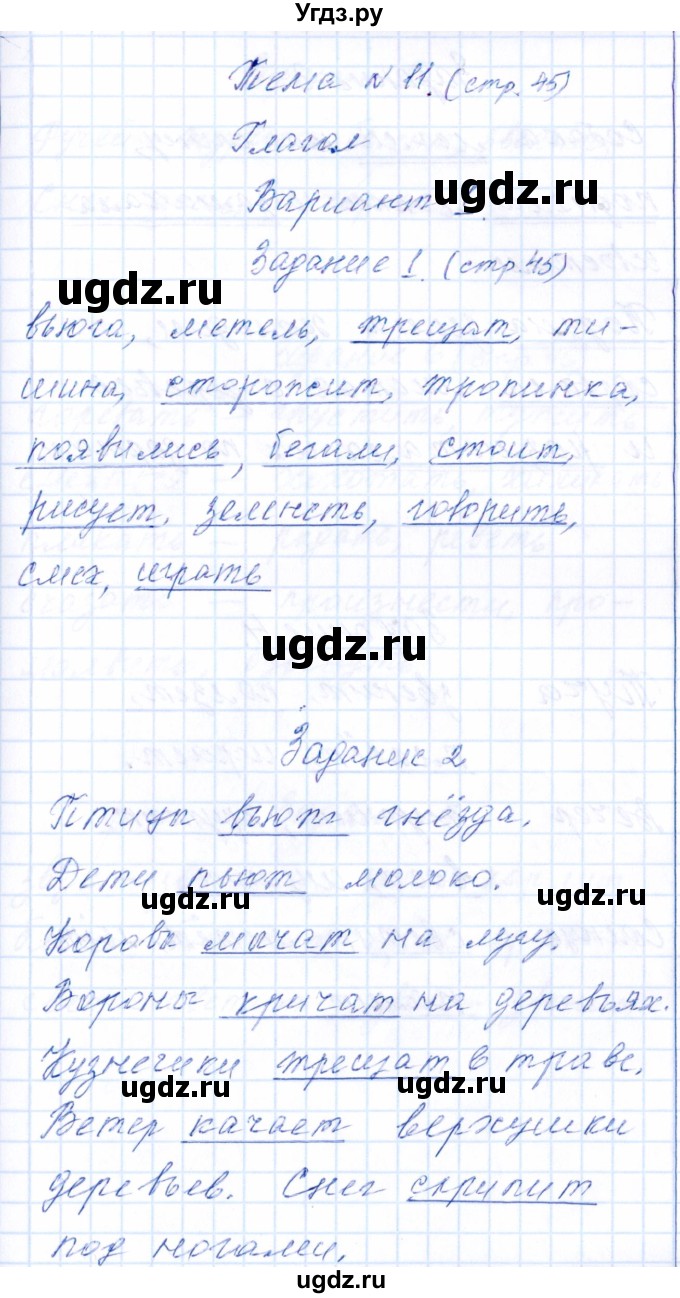 Угдз.ру
Тема №11. (стр. 45)
Глагол
ugdz.ru
Вариант 1.
Задание 1. (стр. 45)
ugdz.ru
вьюга, метель, трещат, ти-
шина, сторожит, тропинка,
появились, бегали, стоит,
рисует, зеленеть, говорить,
смех, играть
ugdz.ru
Задание 2
Птицы вьют гнёзда.
Дети пьют молоко.
ugdz.ru ugdz.ru
Коровы мычат на лугу.
Вороны кричат на деревьях.
Кузнечики трещат в траве.
ugdz.ru ugdz.ru
Ветер качает верхушки
деревьев. Снег скрипит
под ногами.
ugdz.ru